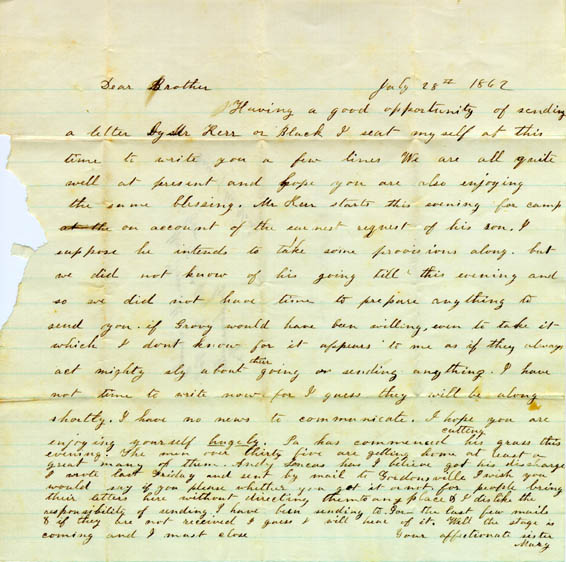 Dear Brother July 28th 1862
Having a good opportunity of sending
a letter by Mr Kerr or Black I seat myself at this
time to write you a few lines We are all quite
well at present and hope you are also enjoying
the same blessing. Mr Kerr starts this evening for camp
at the on account of the earnest request of his son. I
suppose he intends to take some provisions along. but
we did not know of his going till this evening and
so we did not have time to prepare anything to
send you. if would have been willing, even to take it
which I dont know for it appears to me as if they always
act mighty sly about their going or sending anything. I have
not time to write now for I guess they will be along
shortly. I have no news to communicate. I hope you are
enjoying yourself hugely. Pa has commenced cutting his grass this
evening. The men over thirty five are getting home at least a
great many of them. Andy has I believe got his discharge
I wrote last Friday and sent by mail to Gordonsville I wish you
would say if you please whether you get it or not for people bring
their letters here without directing them to any place & I dislike the
responsibility of sending. I have been sending to for the last few mails
& if they are not received I guess I will hear of it. Well the stage is
coming and I must close Your affectionate sister
Mary